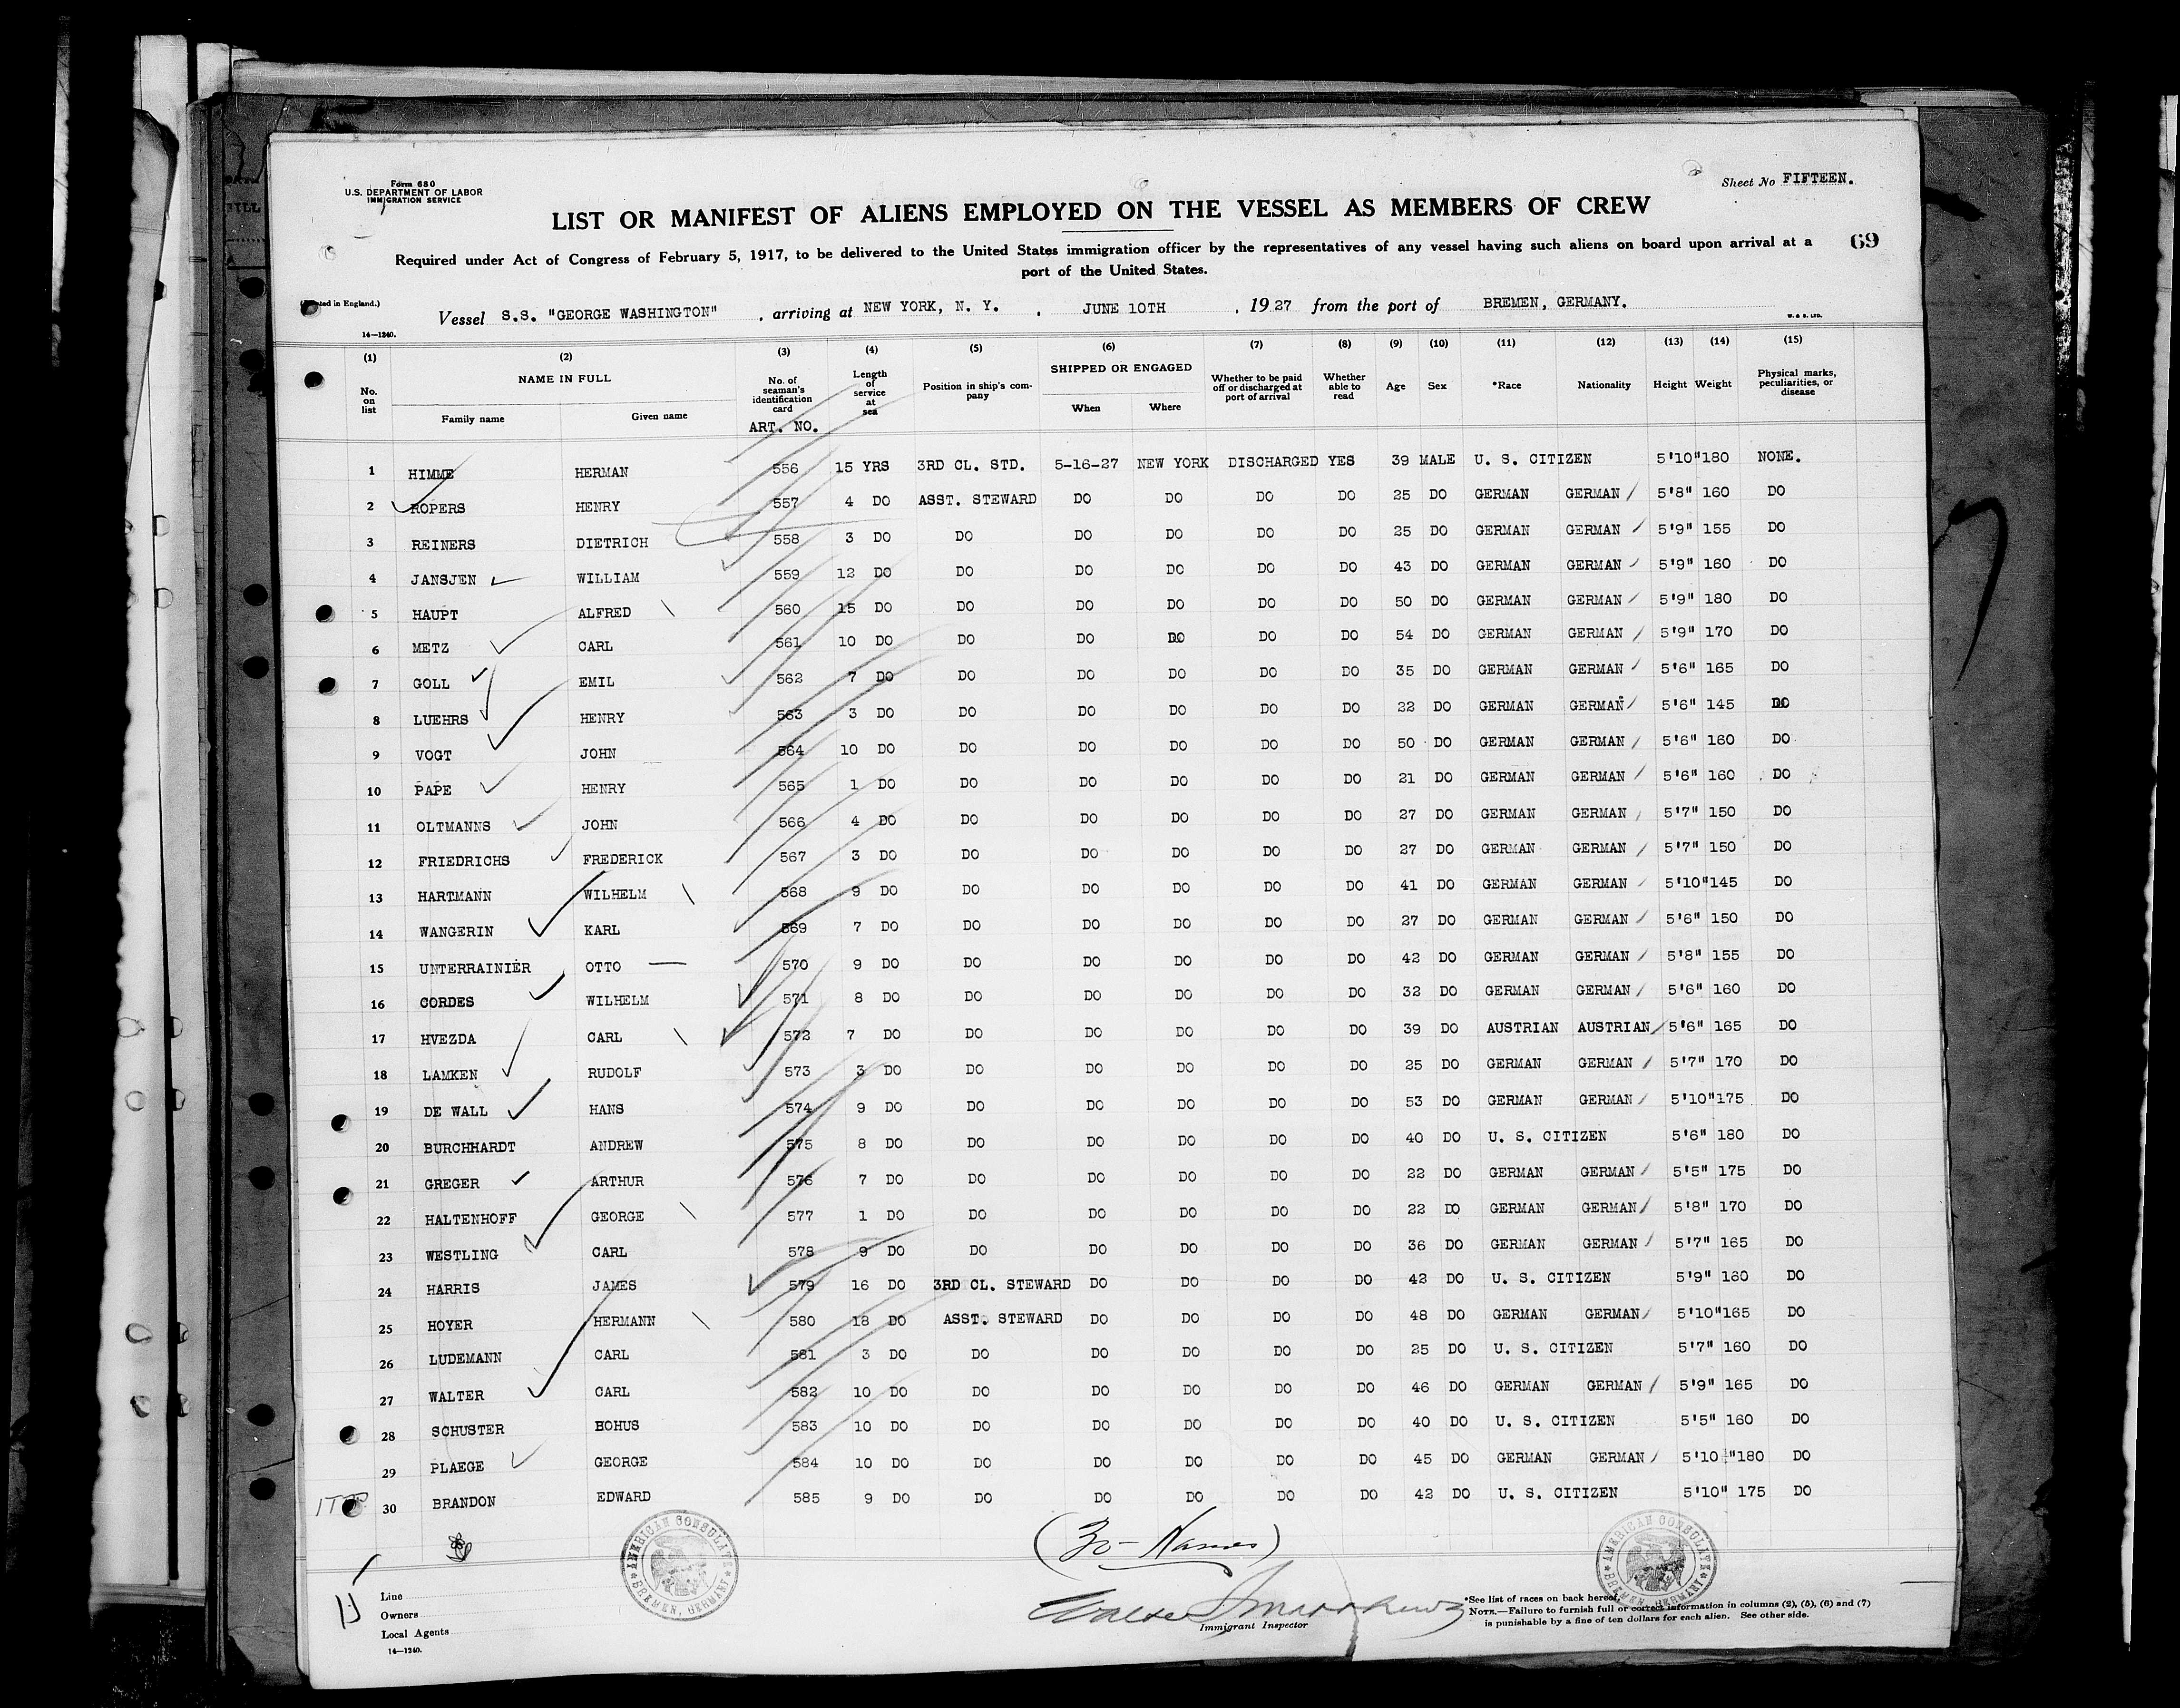 Form 680
U.S. DEPARTMENT OF LABOR
IMMIGRATION SERVICE
Sheet No FIFTEEN.
LIST OR MANIFEST OF ALIENS EMPLOYED ON THE VESSEL AS MEMBERS OF CREW
69
Required under Act of Congress of February 5, 1917, to be delivered to the United States immigration officer by the representatives of any vessel having such aliens on board upon arrival at a
port of the United States.
in England.)
Vessel S.S. "GEORGE WASHINGTON" , arriving at NEW YORK, N. Y. , JUNE 10TH , 1927 from the port of BREMEN, GERMANY.
14—1240.
W. & S. LTD.
(1) (2) (3) (4) (5) (6) (7) (8) (9) (10) (11) (12) (13) (14) (15)
No. on list NAME IN FULL Family name Given name No. of seaman's identification card Length of service at sea Position in ship's company SHIPPED OR ENGAGED When Where Whether to be paid off or discharged at port of arrival Whether able to read Age Sex *Race Nationality Height Weight Physical marks, peculiarities, or disease
ART. NO.
1 HIMME HERMAN 556 15 YRS 3RD CL. STD. 5-16-27 NEW YORK DISCHARGED YES 39 MALE U. S. CITIZEN 5'10" 180 NONE.
2 ROPERS HENRY 557 4 DO ASST. STEWARD DO DO DO DO 25 DO GERMAN GERMAN 5'8" 160 DO
3 REINERS DIETRICH 558 3 DO DO DO DO DO DO 25 DO GERMAN GERMAN 5'9" 155 DO
4 JANSJEN WILLIAM 559 12 DO DO DO DO DO DO 43 DO GERMAN GERMAN 5'9" 160 DO
5 HAUPT ALFRED 560 15 DO DO DO DO DO DO 50 DO GERMAN GERMAN 5'9" 180 DO
6 METZ CARL 561 10 DO DO DO DO DO DO 54 DO GERMAN GERMAN 5'9" 170 DO
7 GOLL EMIL 562 7 DO DO DO DO DO DO 35 DO GERMAN GERMAN 5'6" 165 DO
8 LUEHRS HENRY 563 3 DO DO DO DO DO DO 22 DO GERMAN GERMAN 5'6" 145 DO
9 VOGT JOHN 564 10 DO DO DO DO DO DO 50 DO GERMAN GERMAN 5'6" 160 DO
10 PAPE HENRY 565 1 DO DO DO DO DO DO 21 DO GERMAN GERMAN 5'6" 160 DO
11 OLTMANNS JOHN 566 4 DO DO DO DO DO DO 27 DO GERMAN GERMAN 5'7" 150 DO
12 FRIEDRICHS FREDERICK 567 3 DO DO DO DO DO DO 27 DO GERMAN GERMAN 5'7" 150 DO
13 HARTMANN WILHELM 568 9 DO DO DO DO DO DO 41 DO GERMAN GERMAN 5'10" 145 DO
14 WANGERIN KARL 569 7 DO DO DO DO DO DO 27 DO GERMAN GERMAN 5'6" 150 DO
15 UNTERRAINIER OTTO 570 9 DO DO DO DO DO DO 42 DO GERMAN GERMAN 5'8" 155 DO
16 CORDES WILHELM 571 8 DO DO DO DO DO DO 32 DO GERMAN GERMAN 5'6" 160 DO
17 HVEZDA CARL 572 7 DO DO DO DO DO DO 39 DO AUSTRIAN AUSTRIAN 5'6" 165 DO
18 LAMKEN RUDOLF 573 3 DO DO DO DO DO DO 25 DO GERMAN GERMAN 5'7" 170 DO
19 DE WALL HANS 574 9 DO DO DO DO DO DO 53 DO GERMAN GERMAN 5'10" 175 DO
20 BURCHHARDT ANDREW 575 8 DO DO DO DO DO DO 40 DO U. S. CITIZEN 5'6" 180 DO
21 GREGER ARTHUR 576 7 DO DO DO DO DO DO 22 DO GERMAN GERMAN 5'5" 175 DO
22 HALTENHOFF GEORGE 577 1 DO DO DO DO DO DO 22 DO GERMAN GERMAN 5'8" 170 DO
23 WESTLING CARL 578 9 DO DO DO DO DO DO 36 DO GERMAN GERMAN 5'7" 165 DO
24 HARRIS JAMES 579 16 DO 3RD CL. STEWARD DO DO DO DO 42 DO U. S. CITIZEN 5'9" 160 DO
25 HOYER HERMANN 580 18 DO ASST. STEWARD DO DO DO DO 48 DO GERMAN GERMAN 5'10" 165 DO
26 LUDEMANN CARL 581 3 DO DO DO DO DO DO 25 DO U. S. CITIZEN 5'7" 160 DO
27 WALTER CARL 582 10 DO DO DO DO DO DO 46 DO GERMAN GERMAN 5'9" 165 DO
28 SCHUSTER BOHUS 583 10 DO DO DO DO DO DO 40 DO U. S. CITIZEN 5'5" 160 DO
29 PLAEGE GEORGE 584 10 DO DO DO DO DO DO 45 DO GERMAN GERMAN 5'10" 180 DO
30 BRANDON EDWARD 585 9 DO DO DO DO DO DO 42 DO U. S. CITIZEN 5'10" 175 DO
(30 - Names)
AMERICAN CONSULATE BREMEN, GERMANY
AMERICAN CONSULATE BREMEN, GERMANY
Line
Owners
Local Agents
14—1240.
Immigrant Inspector
*See list of races on back hereof.
NOTE.—Failure to furnish full or correct information in columns (2), (5), (6) and (7)
is punishable by a fine of ten dollars for each alien. See other side.